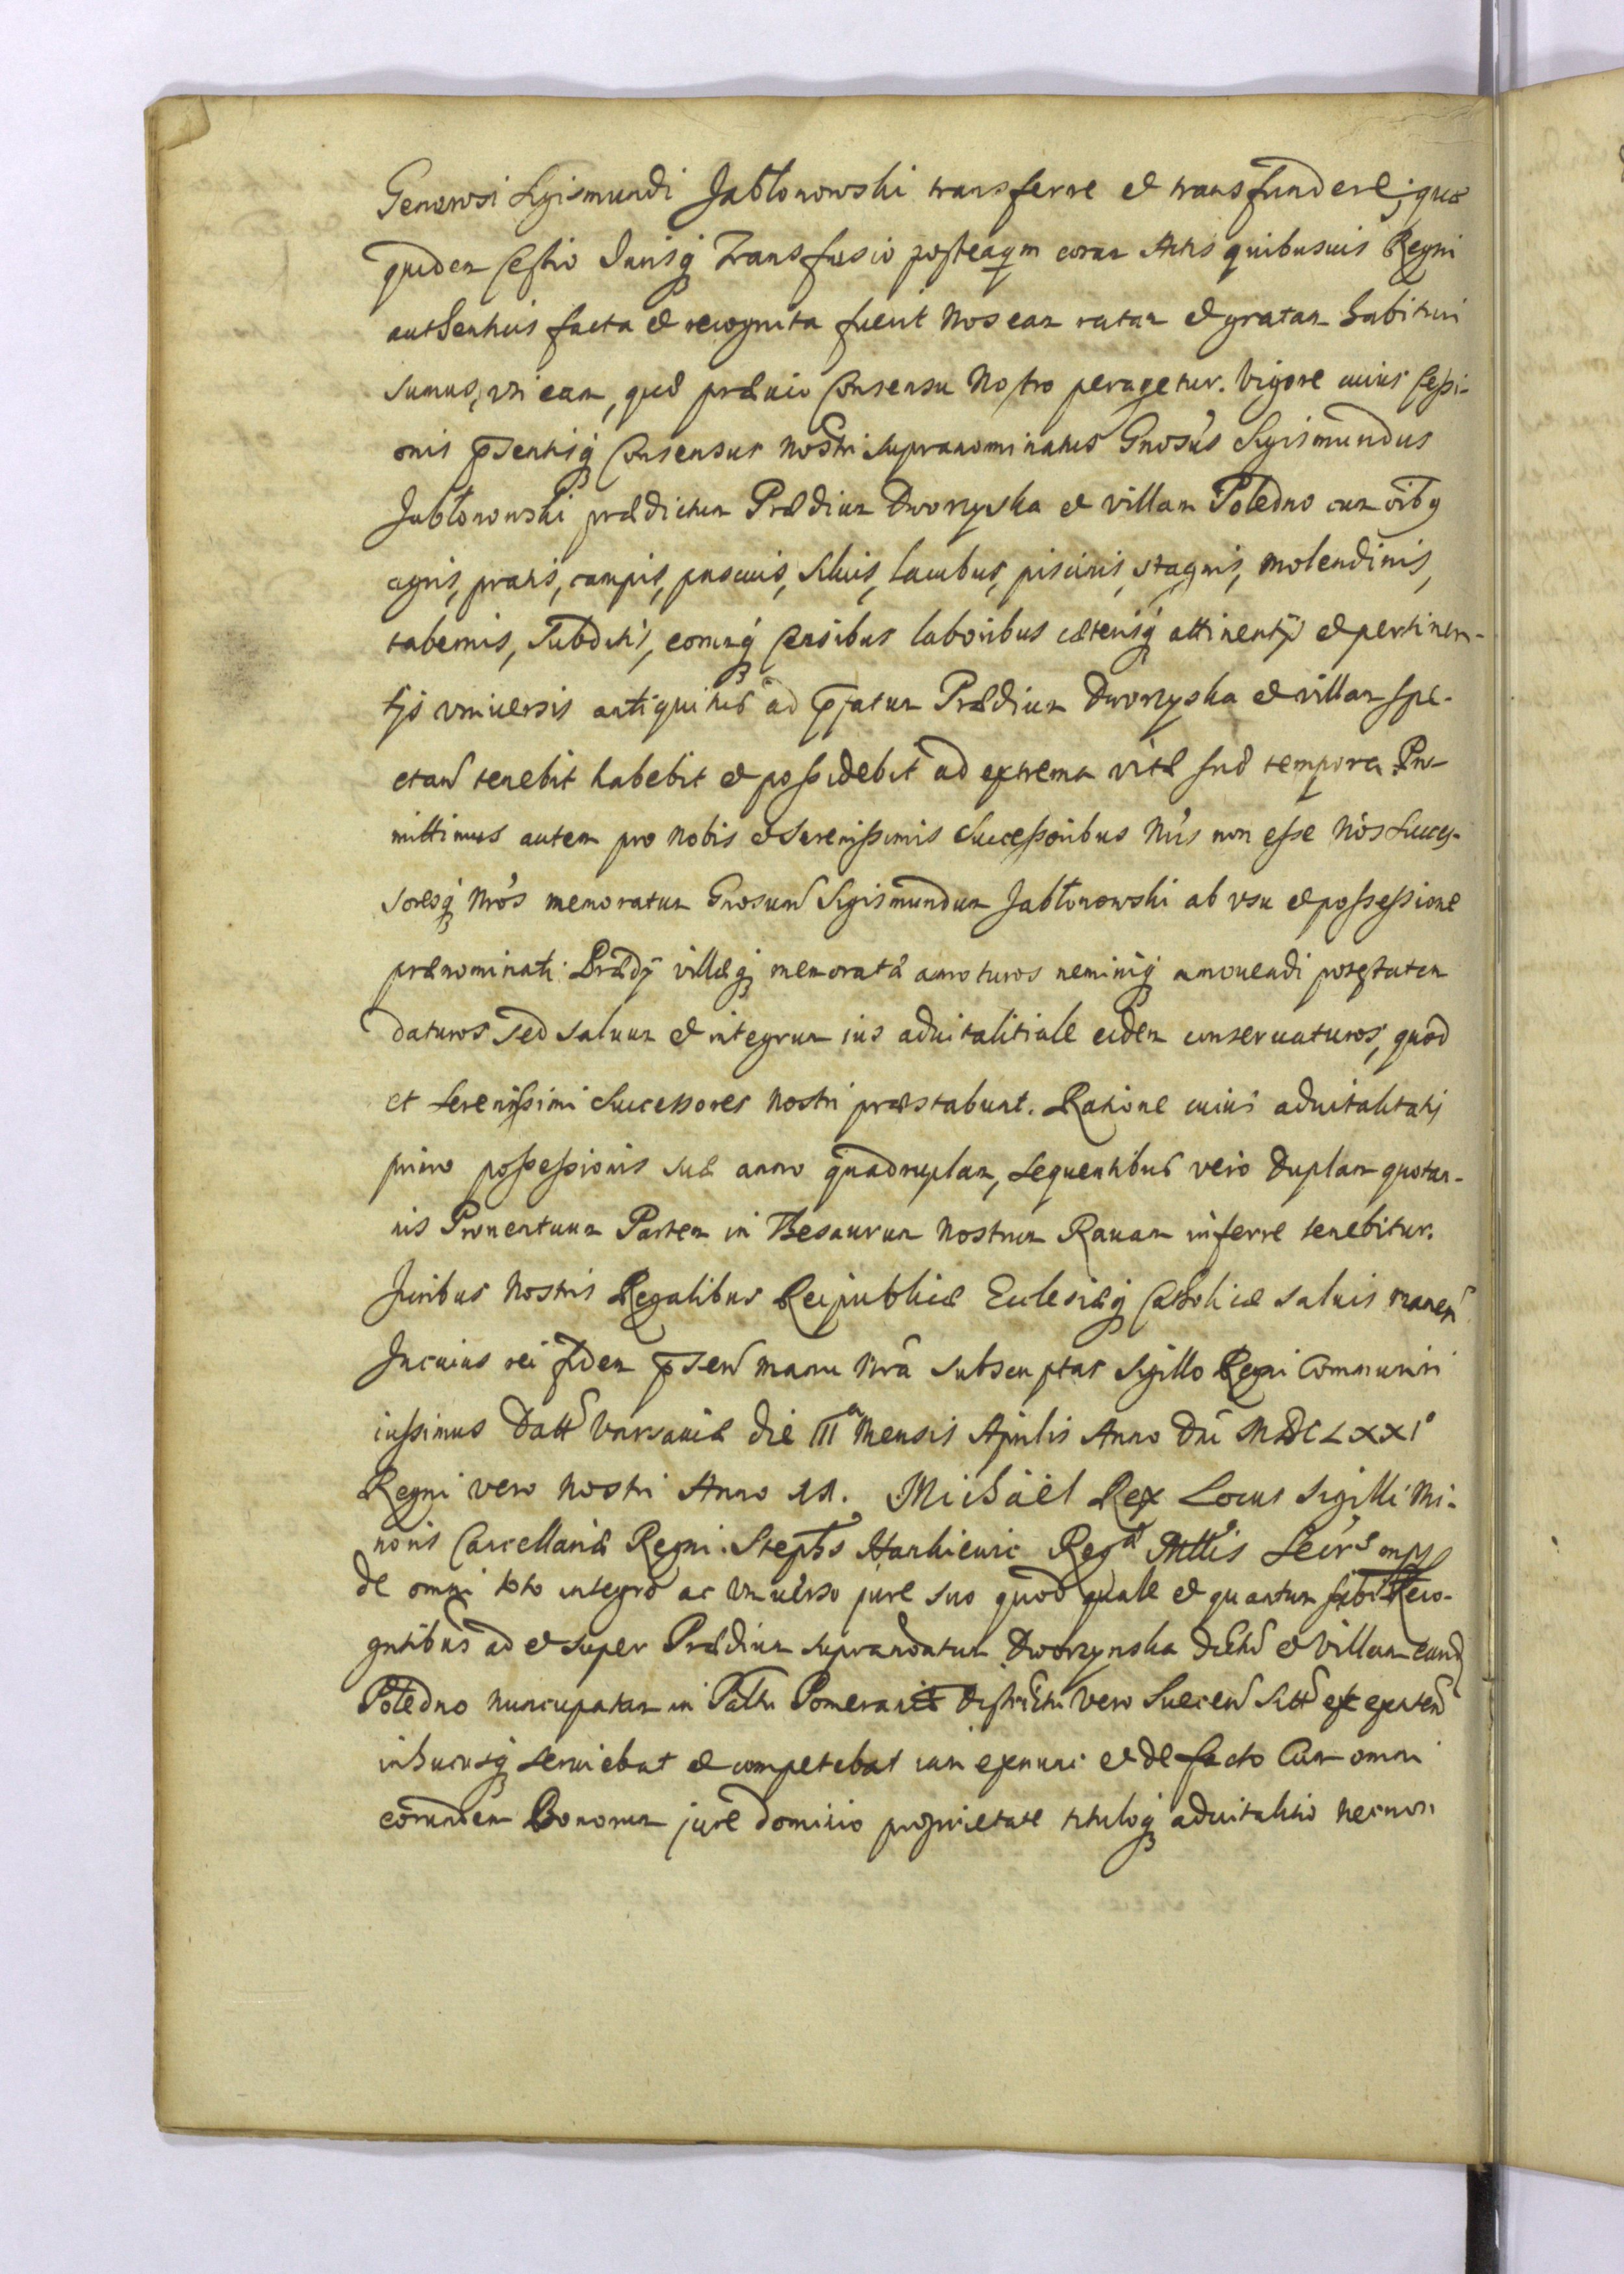 Generosi Sigismundi Jabłonowski transferre et transfundere; quæ
quidem Cessio Jurisq₃ Transfusio posteaqm coram Actis quibusuis Regni
authenticis facta et recognita fuerit Nos eam ratam et gratam habituri
sumus, vti eam, quæ præuio Consensu Nostro peragetur. Vigore cuius Cessi-
onis p̄sentisq₃ Consensus Nostri supranominatus Gnosus Sigismundus
Jabłonowski prædictum Prædium Dworzyska et villam Poledno cum oibq
agris, pratis, campis, pascuis, siluis, lacubus, piscinis, stagnis, molendinis,
tabernis, subditis, eorumq₃ censibus laboribus cæterisq₃ attinentijs et pertinen-
tijs vniuersis antiquitus ad p̄fatum Prædium Dworzyska et villam spe-
ctan tenebit habebit et possidebit ad extrema vitæ suæ tempora. Pro-
mittimus autem pro Nobis et Serenissimis Successoribus Nris non esse Nos Succes-
soresq₃ Nros memoratum Gnosum Sigismundum Jabłonowski ab vsu et possessione
prænominati Prædij villæq₃ memoratæ amoturos neminiq₃ amouendi potestatem
daturos sed saluum et integrum ius aduitalitiale eidem conseruaturos, quod
et Serenissimi Successores Nostri præstabunt. Ratione cuius aduitalitatis
primo possessionis suæ anno quadruplam, sequentibus vero duplam quotan-
nis Prouentuum Partem in Thesaurum Nostrum Rauam inferre tenebitur.
Juribus Nostris Regalibus Reipublicæ Ecclesiæq₃ Catholicæ saluis manen
Jn cuius rei fidem p̄sen manu Nra subscriptas Sigillo Regni Communiri
iussimus Datt Varsauiæ die IIIa Mensis Aprilis Anno Dni MDCLXXI°
Regni vero Nostri Anno II. Michaël Rex Locus Sigilli Mi-
noris Cancellariæ Regni. Stephs Hankiewic Regæ Mttis Secrs mp
de omni toto integro ac vniuerso jure suo quod quale et quantum sibi Reco-
gntibus ad et super Prædium supranoatum Dworzynska dictu et Villam eand
Poledno nuncupatam in Palttu Pomeraniæ districtu vero Suecen Sitt et existen
inhucusq₃ seruiebat et competebat iam exnunc et de facto Cum omni
eorundem Bonorum jure dominio proprietate tituloq₃ aduitalitio necnon